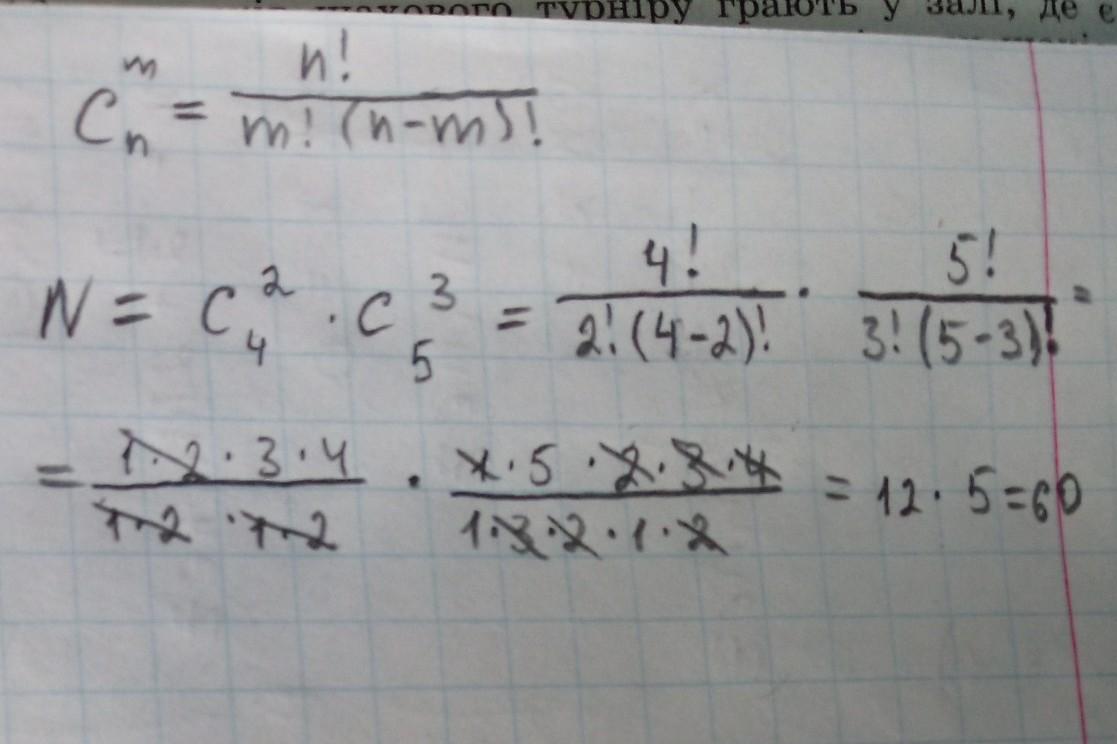 шахового турніру грають у залі, де є
C_n^m = n! / m! (n-m)!
N = C_4^2 · C_5^3 = 4! / 2! (4-2)! · 5! / 3! (5-3)! =
= 1·2·3·4 / 1·2·1·2 · 1·5·2·3·4 / 1·3·2·1·2 = 12·5=60